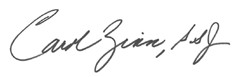 Carol Zinn, SSJ